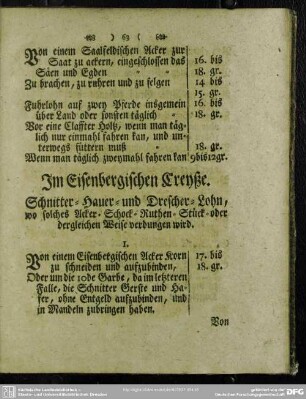 63
Von einem Saalfeldischen Acker zur
Saat zu ackern, eingeschlossen das 16. bis
Säen und Egden 18. gr.
Zu brachen, zu ruhren und zu felgen 14 bis
15. gr.
Fuhrlohn auf zwey Pferde insgemein 16. bis
über Land oder sonsten täglich 18. gr.
Vor eine Claffter Holtz, wenn man täg-
lich nur einmahl fahren kan, und un-
terwegs füttern muß 18. gr.
Wenn man täglich zweymahl fahren kan 9bis12gr.
Im Eisenbergischen Creyße.
Schnitter- Hauer- und Drescher- Lohn,
wo solches Acker- Schock- Ruthen- Stück- oder
dergleichen Weise verdungen wird.
1.
Von einem Eisenbergischen Acker Korn 17. bis
zu schneiden und aufzubinden, 18. gr.
Oder um die 10de Garbe, da im letzteren
Falle, die Schnitter Gerste und Ha-
fer, ohne Entgeld aufzubinden, und
in Mandeln zubringen haben.
Von